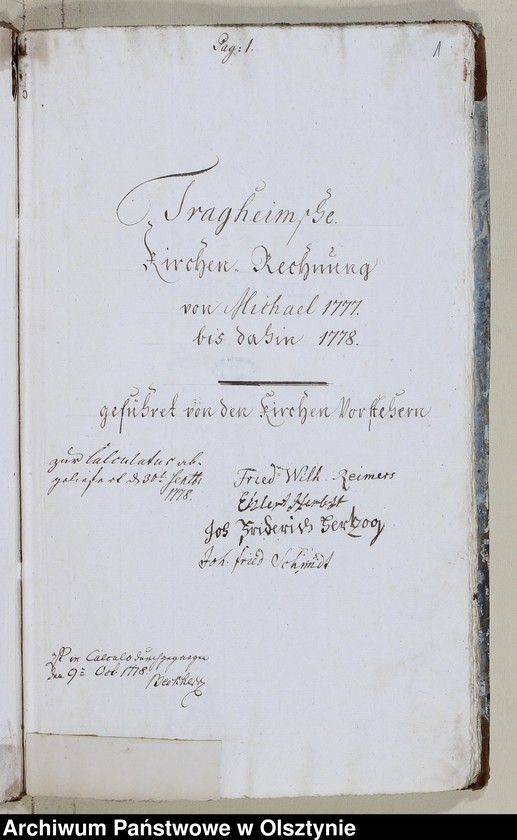 Pag: 1.
1
Tragheimsche
Kirchen-Rechnung
von Michael 1777.
bis dahin 1778.
geführet von den Kirchen Vorstehern
zur Calculatur ab-
geliefert d 30t Septbr
1778.
Fried. Wilh Reimers
Ehlert
Joh Friderich Hertzog
Joh. fried Schmidt
Ist in Calculo durchgegangen
den 9 Oct. 1778.
Archiwum Państwowe w Olsztynie